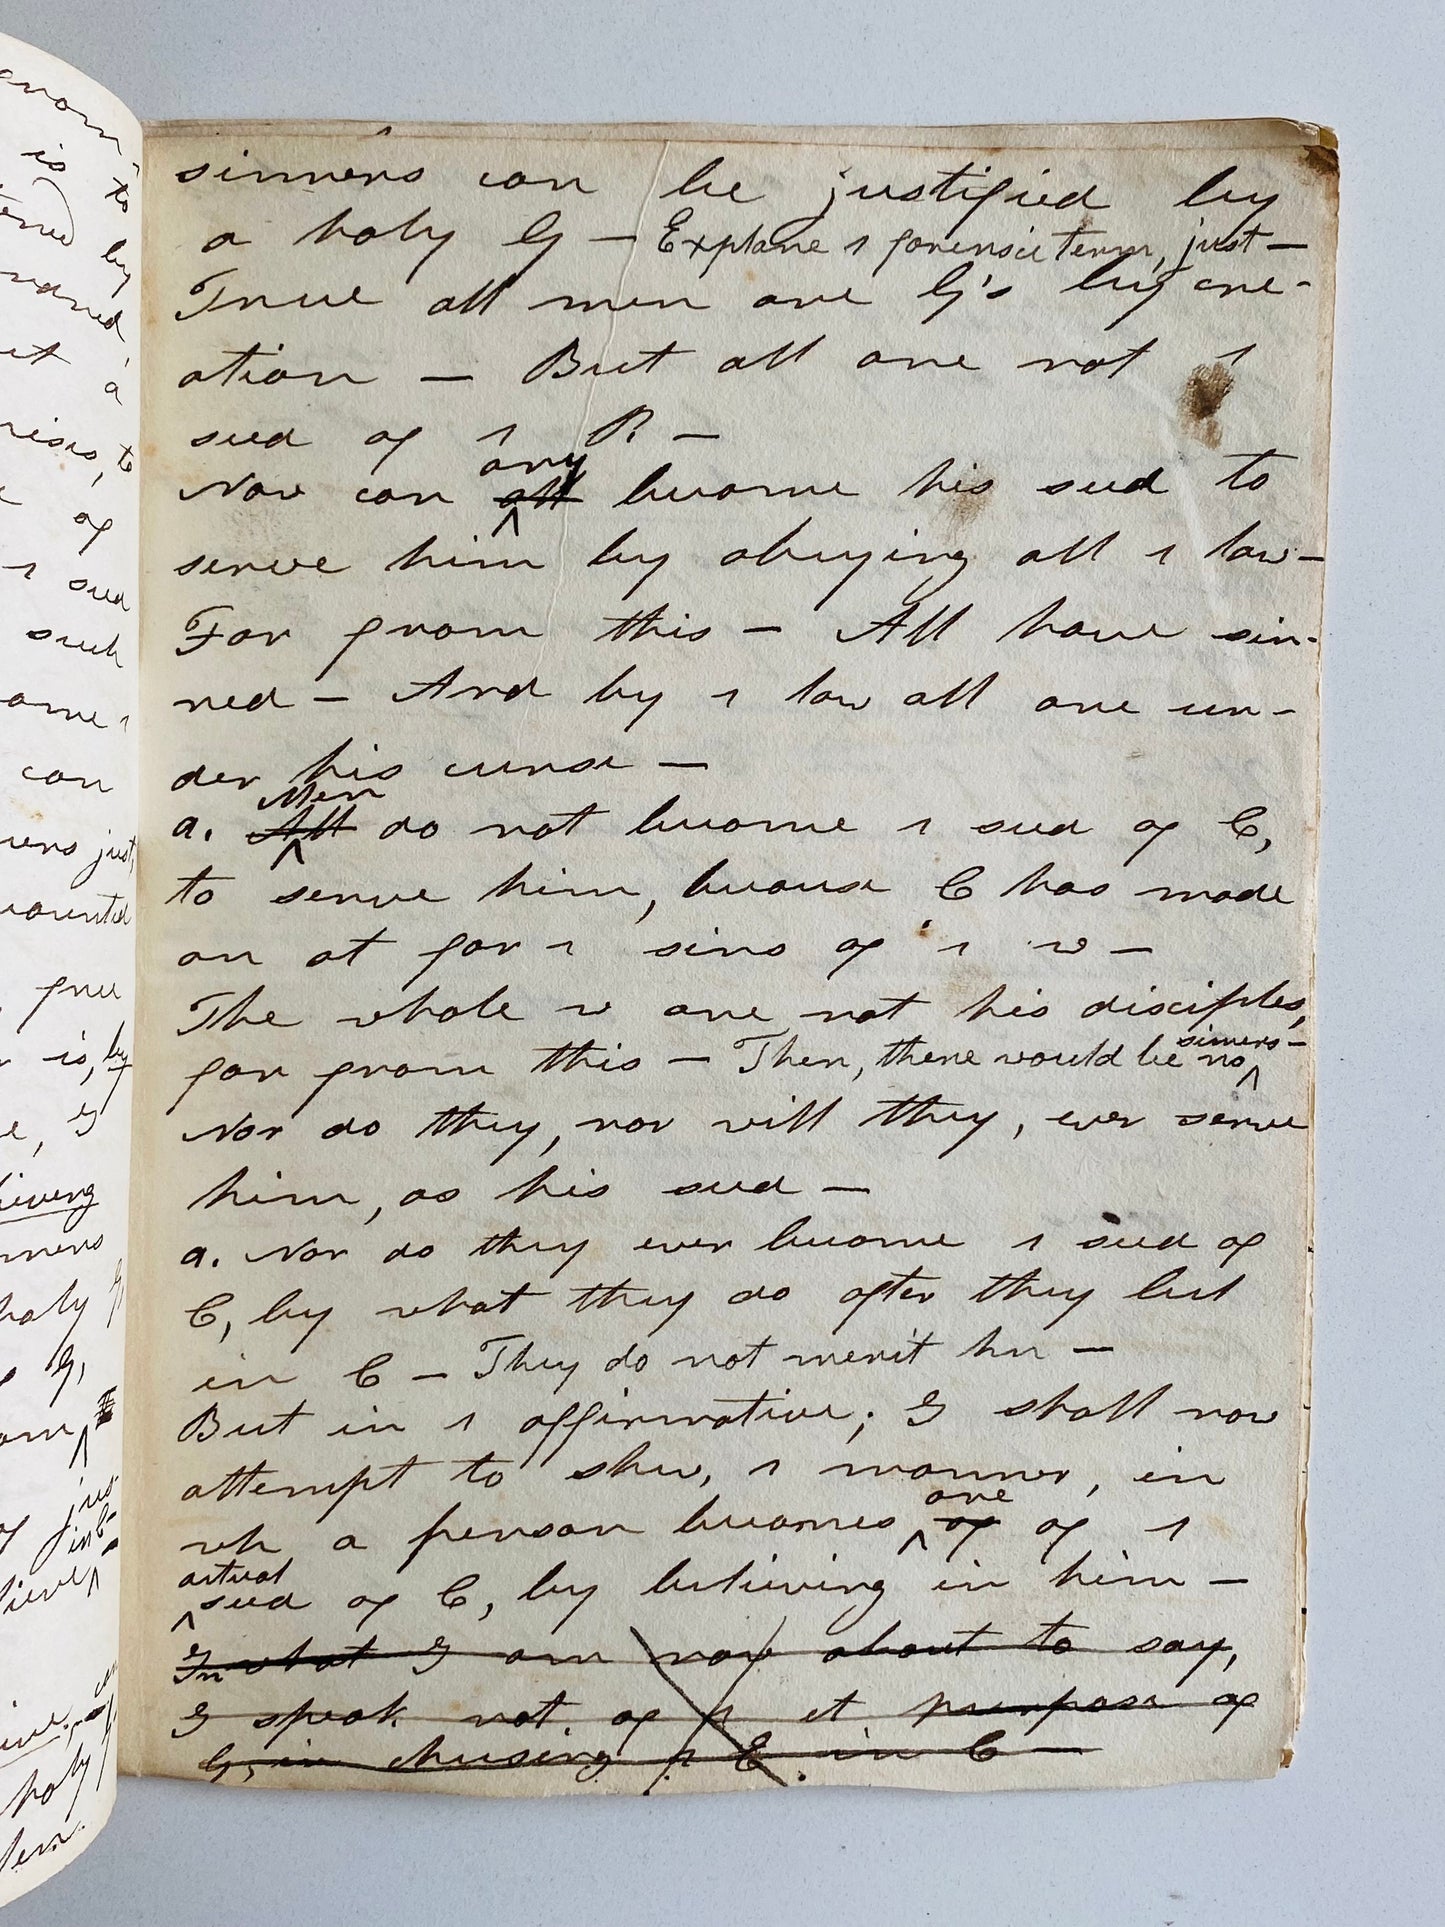 sinners can be justified by
a holy G — Explane 1 forensic term, just —
True all men are G's by cre-
ation — But all are not 1
seed of 1 R. —
Nor can any all become his seed to
serve him by obeying all 1 law —
Far from this — All have sin-
ned — And by 1 law all are un-
der his curse —
a. Men All do not become 1 seed of C,
to serve him, because C has made
an at for 1 sins of 1 w —
The whole w are not his disciples,
far from this — Then, there would be no sinners —
Nor do they, nor will they, ever serve
him, as his seed —
a. Nor do they ever become 1 seed of
C, by what they do after they bel
in C — They do not merit hn —
But in 1 affirmative; I shall now
attempt to shew, 1 manner, in
wh a person becomes one of of 1
actual seed of C, by believing in him —
In what I am now about to say,
I speak not of 1 et purpose of
G, in chusing 1 E in C —
is
to
by
a
to
of
1 seed
such
can
just,
free
is, by
holy
G,
jus
in C-
holy